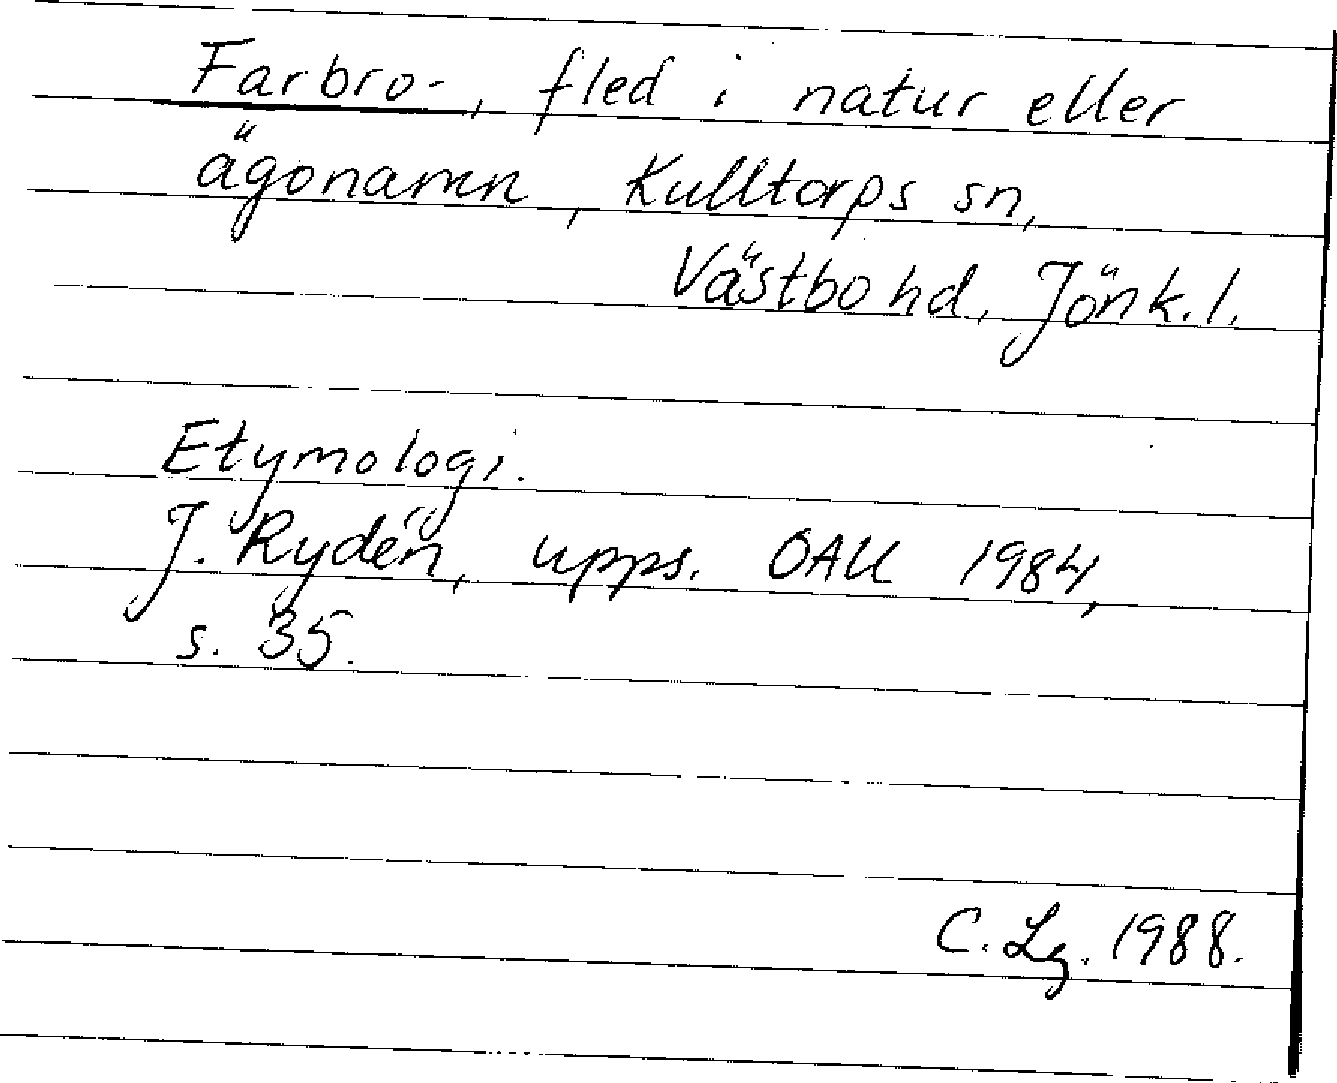 Farbro-, fled i natur eller
ägonamn, Kulltorps sn,
Västbo hd, Jönk. l.
Etymologi.
J. Rydén, upps. OAU 1984,
s. 35.
C. Lg. 1988.